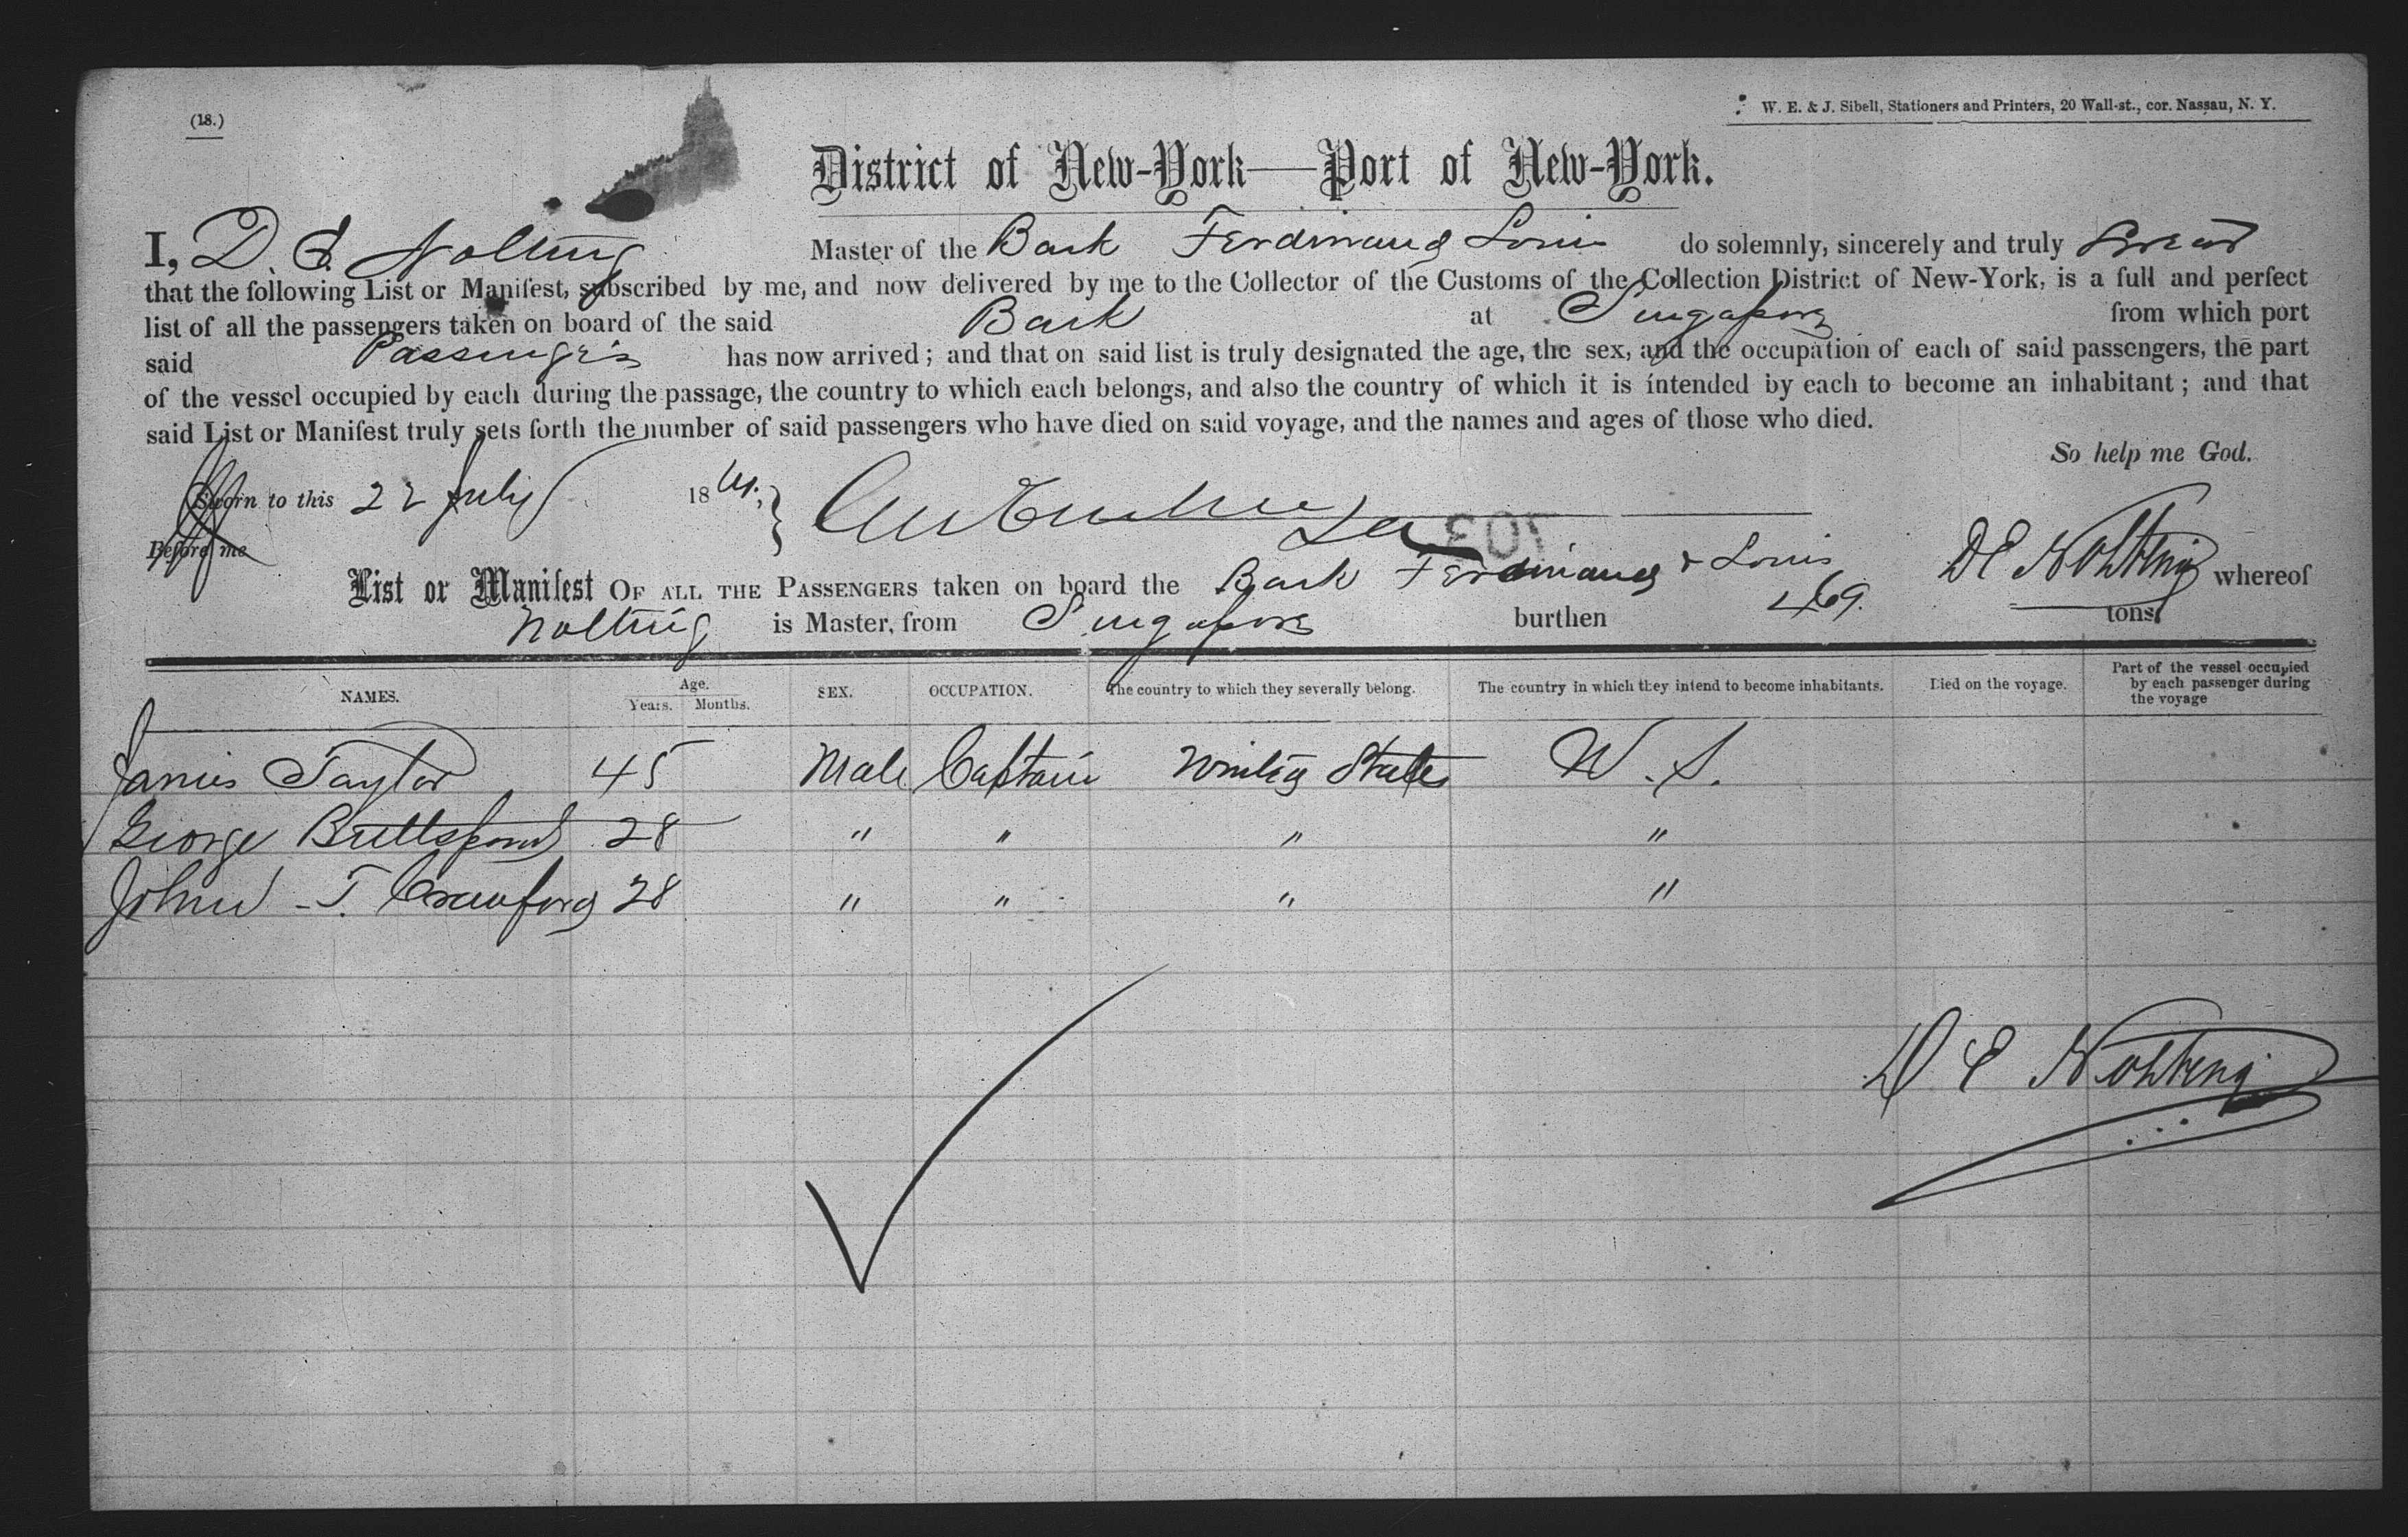 (18.)
W. E. & J. Sibell, Stationers and Printers, 20 Wall-st., cor. Nassau, N. Y.
District of New-York—Port of New-York.
I, D. E. Nolting Master of the Bark Ferdinand Louis do solemnly, sincerely and truly Swear
that the following List or Manifest, subscribed by me, and now delivered by me to the Collector of the Customs of the Collection District of New-York, is a full and perfect
list of all the passengers taken on board of the said Bark at Singapore from which port
said Passengers has now arrived; and that on said list is truly designated the age, the sex, and the occupation of each of said passengers, the part
of the vessel occupied by each during the passage, the country to which each belongs, and also the country of which it is intended by each to become an inhabitant; and that
said List or Manifest truly sets forth the number of said passengers who have died on said voyage, and the names and ages of those who died.
So help me God.
Sworn to this 22 July 1864.
Before me
703
D E Nolting
List or Manifest OF ALL THE PASSENGERS taken on board the Bark Ferdinand & Louis whereof
Nolting is Master, from Singapore burthen 469. tons.
NAMES. Age. Years. Months. SEX. OCCUPATION. The country to which they severally belong. The country in which they intend to become inhabitants. Died on the voyage. Part of the vessel occupied by each passenger during the voyage
James Taylor 45 Male Captain United States U. S.
George 28 " " " "
John T. Crawford 28 " " " "
D E Nolting